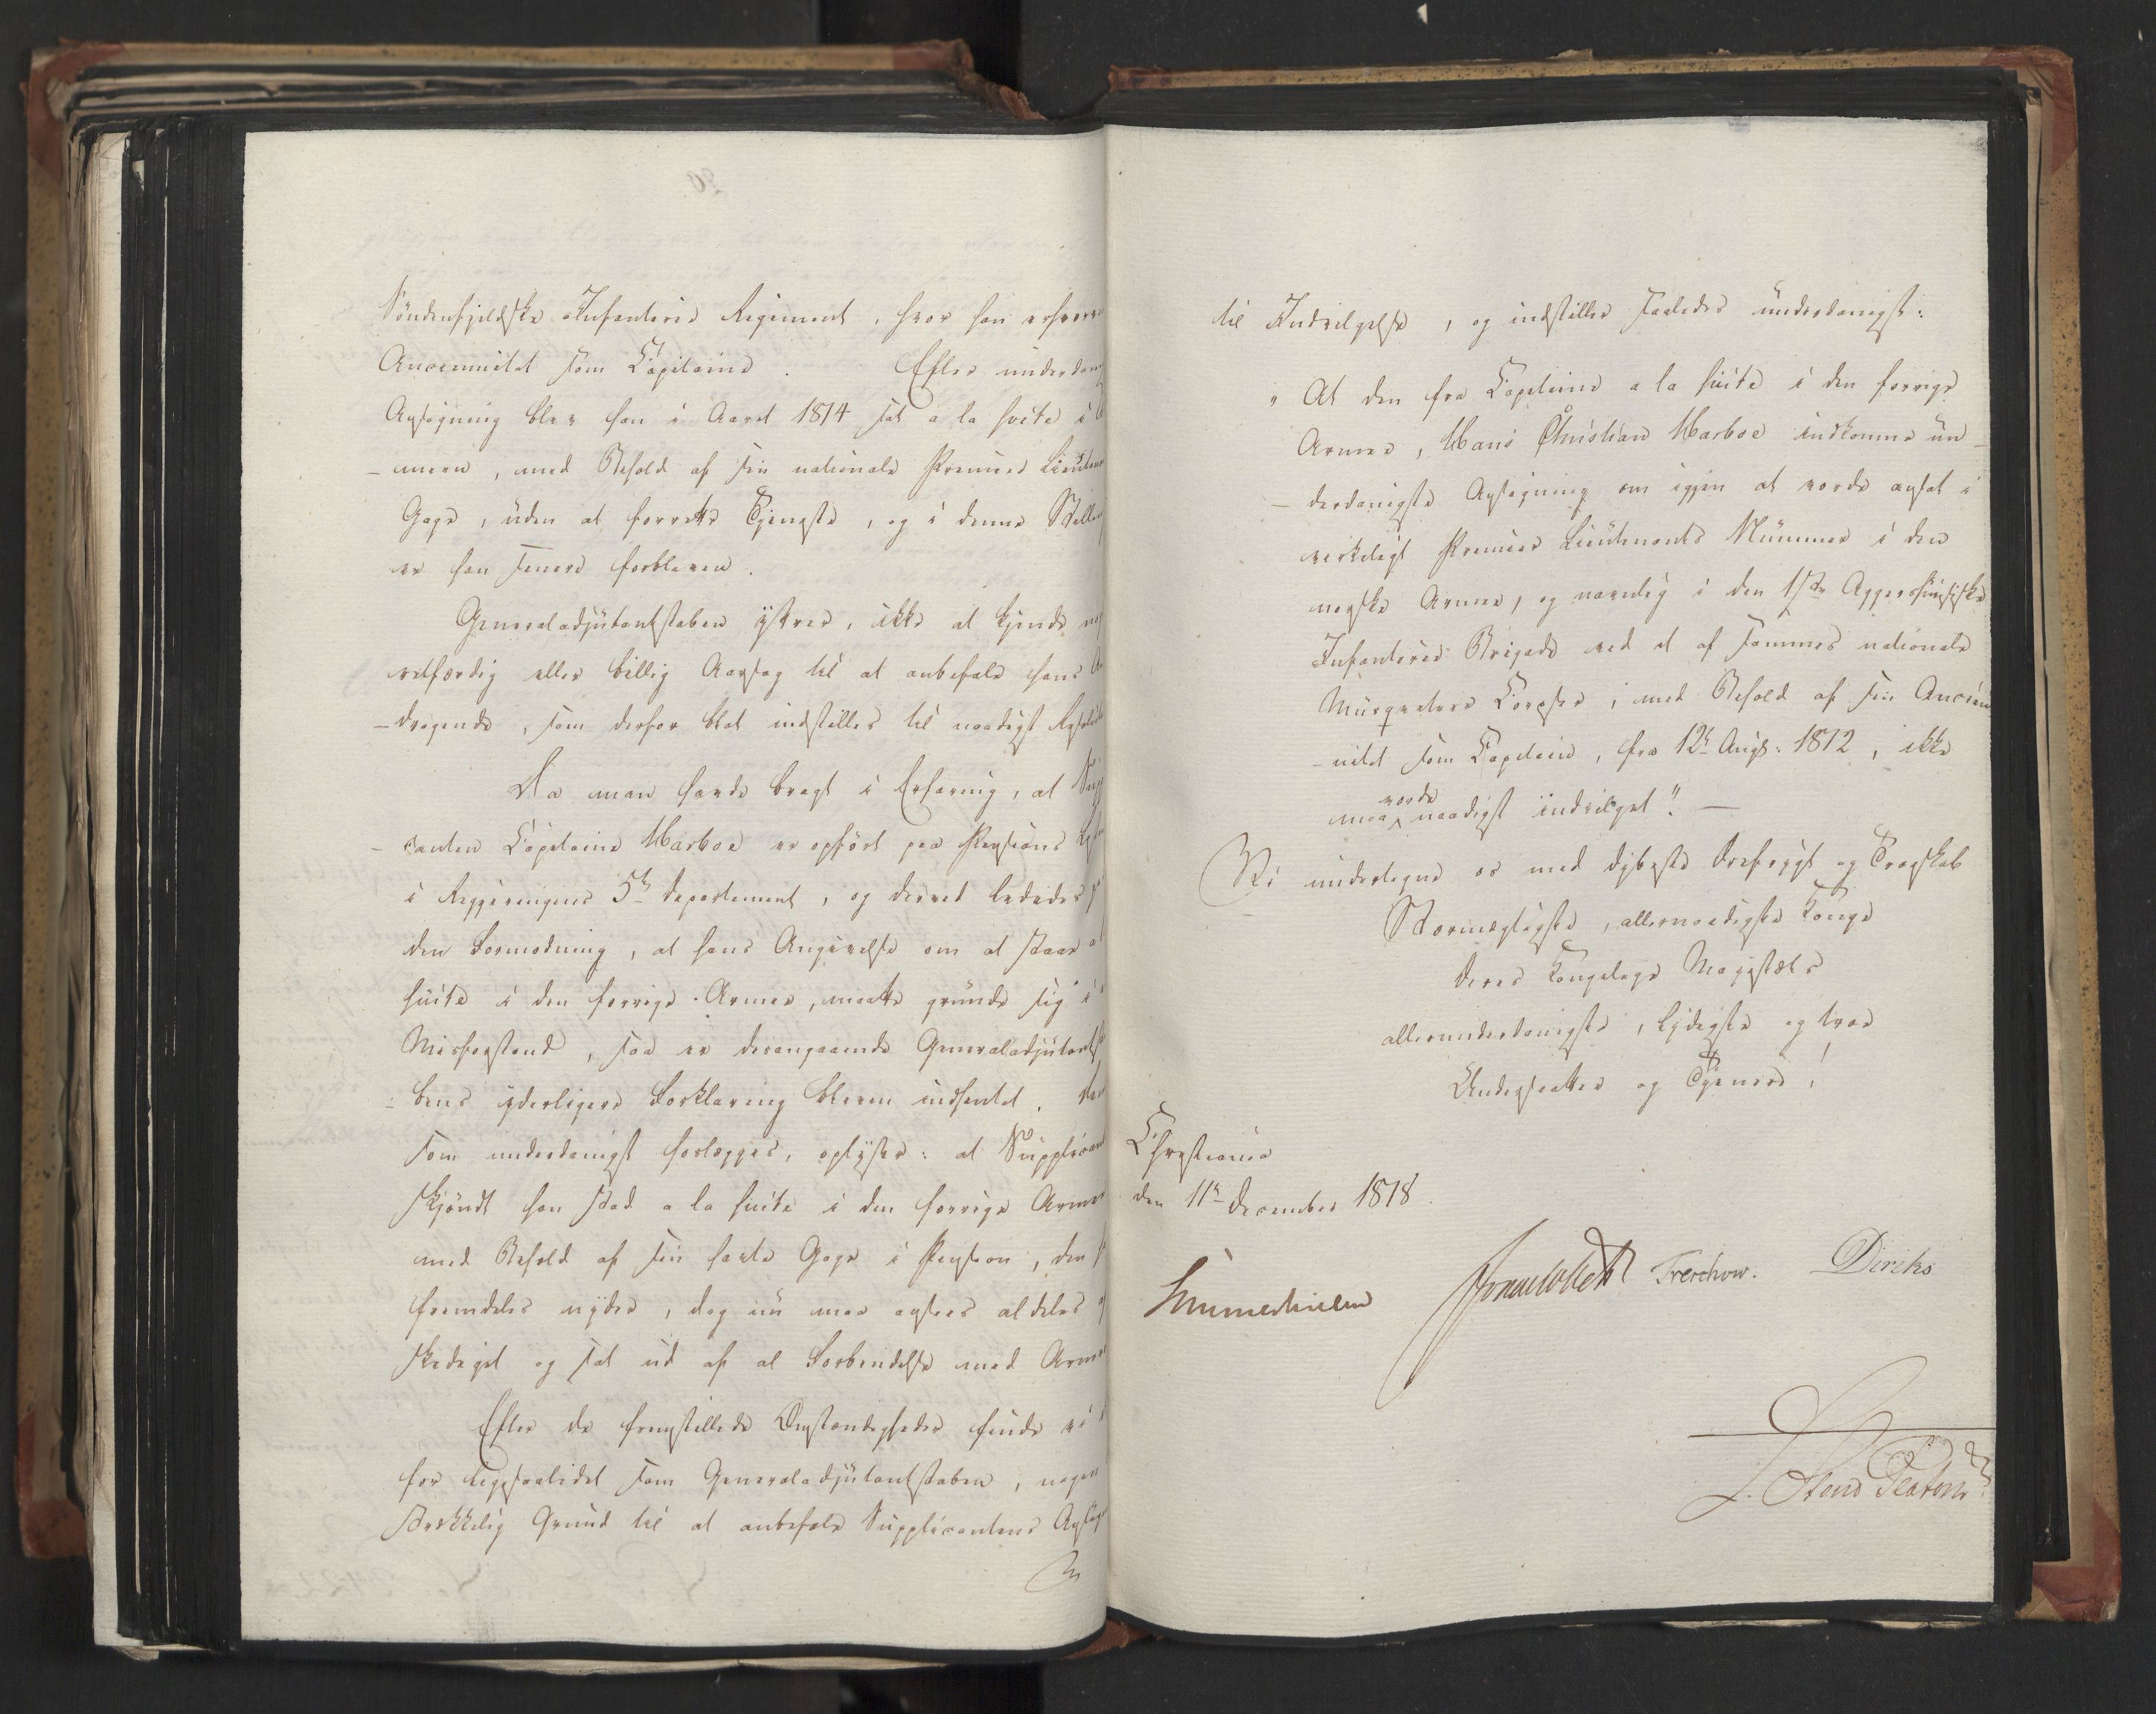 Söndenfjeldske Infanterie Regiment, hvor han erhverve
Ancennitet som Capitaine. Efter underdan
Ansøgning blev han i Aaret 1814 sat a la svite i
-meen, med Behold af sin nationale Premier Lieuten
Gage, uden at forrette Tjeneste, og i denne Stilli
er han senere forbleven.
Generaladjutantstaben yttrer, ikke at kjende no
retfærdig eller billig Aarsag til at anbefale hans
-dragende, som derfor blot indstilles til naadigst Resolut
Da man havde bragt i Erfaring, at Sup
-canten Capitaine Harboe er opført paa Pensions
i Regjeringens 5te Departement, og derved lededes
den Formodning, at hans Angivelse om at staae
suite i den forrige Armee, maatte grunde sig i
Misforstand, saa er desangaaende Generaladjutantst
-bens yderligere Forklaring bleven indhentet. Den
som underdanigst forlægges, oplyser: at Supplican
skjöndt han stod a la suite i den forrige Arme
med Behold af sin havte Gage i Pension, den
fremdeles nyder, dog nu maa ansees aldeles
skediget og sat ud af al Forbindelse med Arme
Efter de fremstillede Omstændigheder finde vi
for ligesaalidet som Generaladjutantstaben, nogen
strækkelig Grund til at anbefale Supplicantens Ansøg
til Indvilgelse, og indstiller saaledes underdanigst:
"At den fra Capitaine a la suite i den forrige
Armee, Hans Christian Harboe indkomne un-
-derdanigste Ansøgning om igjen at vorde ansat i
virkeligt Premier Lieutenants Nummer i den
norske Armee, og navnlig i den 1ste Aggershuusiske
Infanterie Brigade ved et af sammes nationale
Musqveteer Corpser, med Behold af sin Ancien
-nitet som Capitain, fra 12te Augs: 1812, ikke
vorde
maa naadigst indvilget". —
Vi undertegne os med dybeste Ærefrygt og Troskab
Stormægtigste, allernaadigste Konge
Deres Kongelige Majestæts
allerunderdanigste, lydigste og troe
Undersaatter og Tjenere!
Christiania
den 11te December 1818.
Sommerhielm Treschow. Diriks